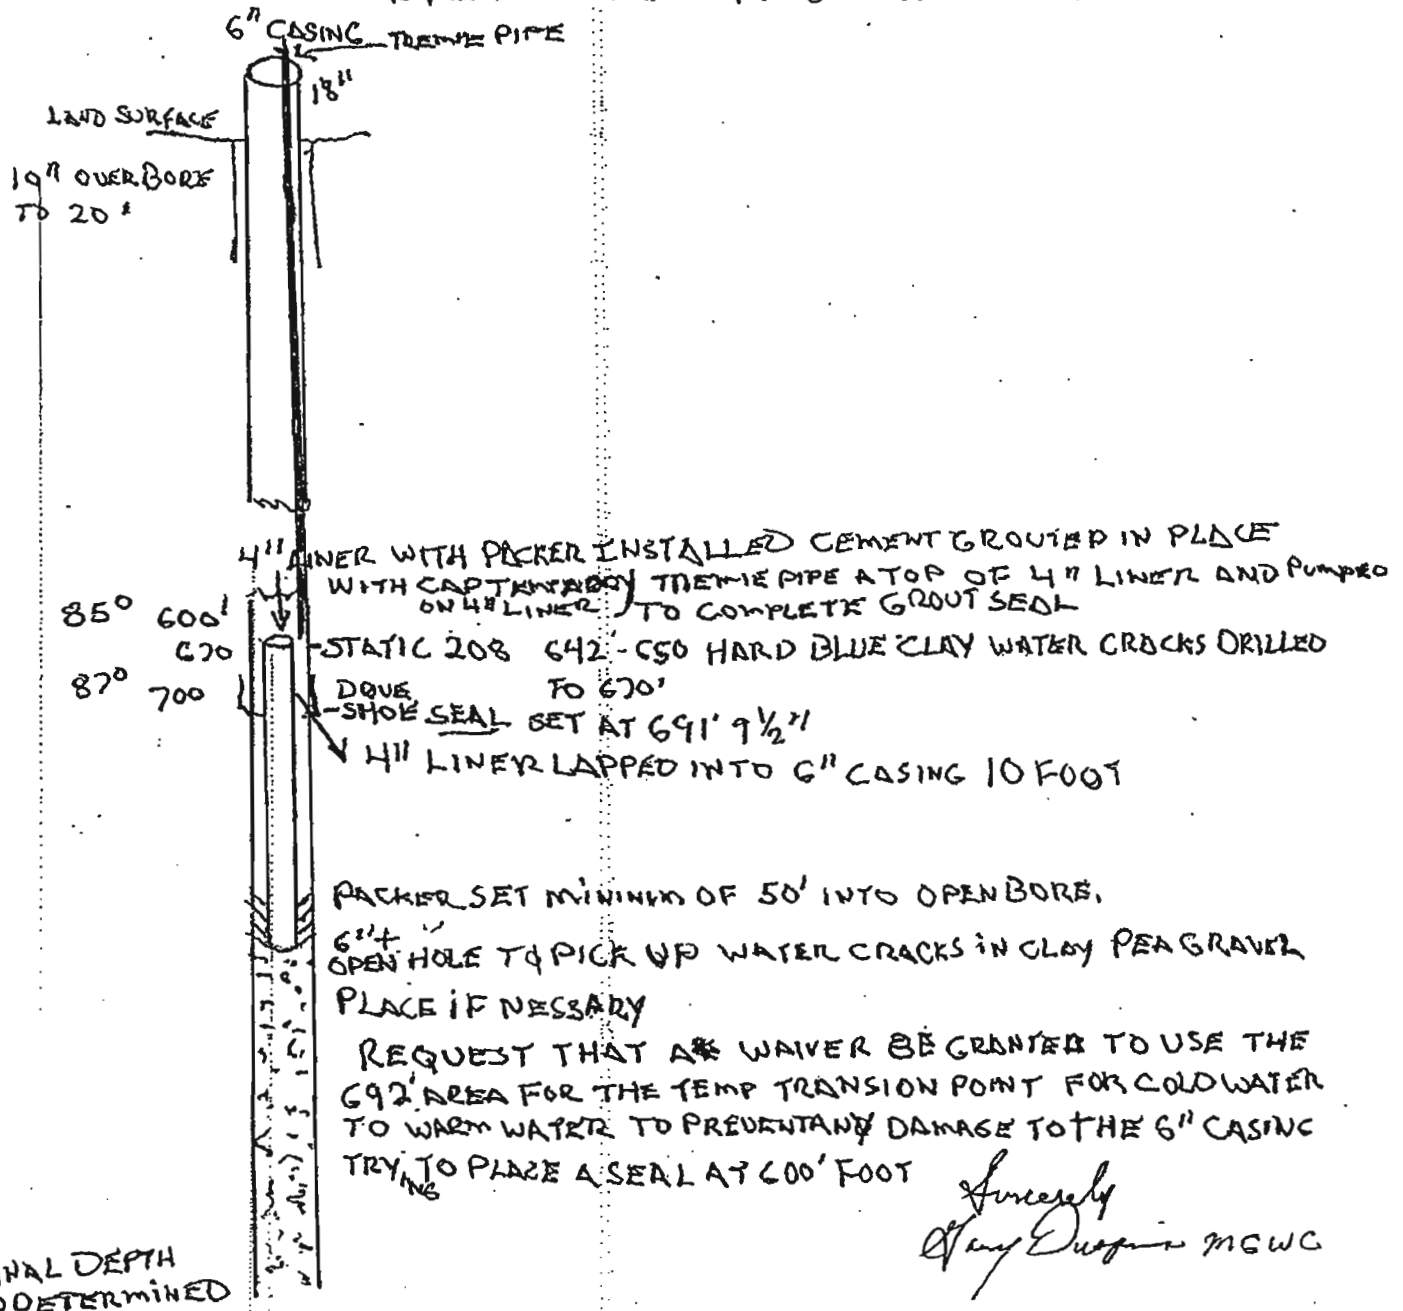 6" CASING
TREMIE PIPE
18"
LAND SURFACE
10" OVERBORE
TO 20'
4" LINER WITH PACKER INSTALLED CEMENT GROUTED IN PLACE
WITH CAP TEMPARARY TREMIE PIPE A TOP OF 4" LINER AND PUMPED
ON 4" LINER TO COMPLETE GROUT SEAL
85° 600'
670 -STATIC 208 642'-650 HARD BLUE CLAY WATER CRACKS DRILLED
87° 700 DOVE TO 670'
-SHOE SEAL SET AT 691' 9 1/2"
4" LINER LAPPED INTO 6" CASING 10 FOOT
PACKER SET MININUM OF 50' INTO OPEN BORE.
6"+
OPEN HOLE TO PICK UP WATER CRACKS IN CLAY PEAGRAVEL
PLACE IF NESSARY
REQUEST THAT A WAIVER BE GRANTED TO USE THE
692' AREA FOR THE TEMP TRANSION POINT FOR COLD WATER
TO WARM WATER TO PREVENT ANY DAMAGE TO THE 6" CASING
TRYING TO PLACE A SEAL AT 600' FOOT
Sincerely
MGWC
NAL DEPTH
DETERMINED